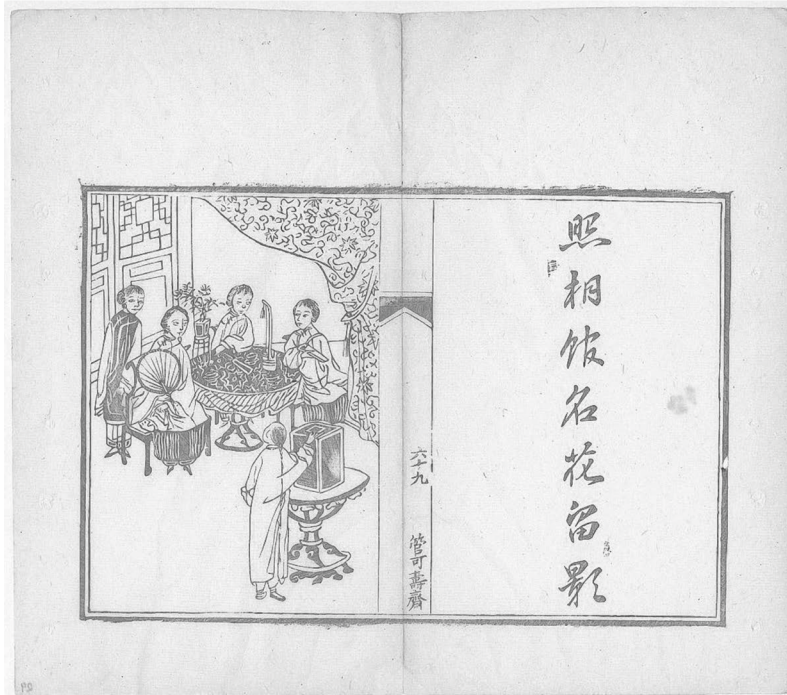 照相館名花留影
六十九
管可壽齋